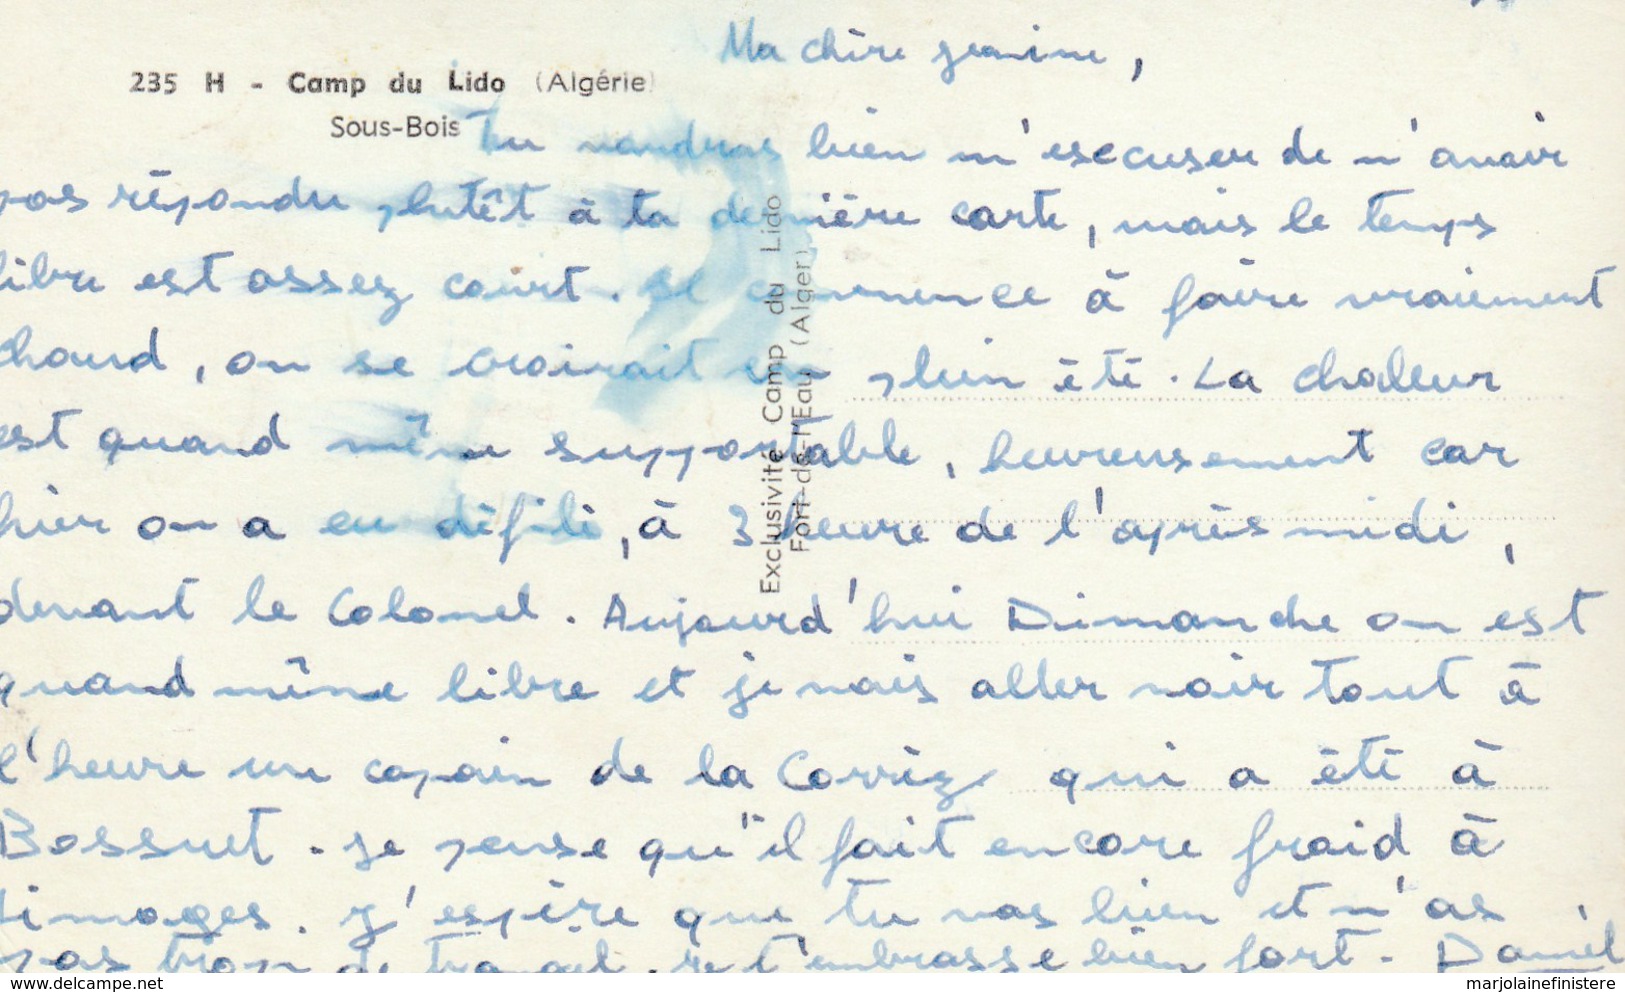 235 H - Camp du Lido (Algérie)
Sous-Bois
Exclusivité Camp du Lido
Fort-de-l'Eau (Alger)
Ma chère Jeanine,
Tu voudras bien m'escuser de n'avoir
pas répondu plutêt à ta dernière carte, mais le temps
libre est assez court. Il commence à faire vraiement
chaud, on se croirait en plein été. La chaleur
est quand même supportable, heureusement car
hier on a eu défilé, à 3 heure de l'après midi,
devant le Colonel. Aujourd'hui Dimanche on est
quand même libre et je vais aller voir tout à
l'heure un copain de la Corrèze qui a été à
Bossuet. Je pense qu'il fait encore froid à
Limoges. J'espère que tu vas bien et n'as
pas trop de travail. Je t'embrasse bien fort. Daniel
delcampe.net
marjolainefinistere